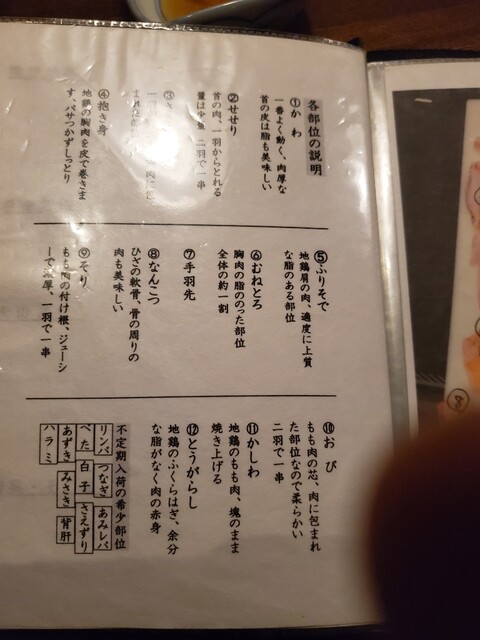 各部位の説明
①かわ
一番よく動く、肉厚な
首の皮は脂も美味しい
②せせり
首の肉、一羽からとれる
量は少量 二羽で一串
③
④抱き身
地鶏の胸肉を皮で巻きま
す、パサつかずしっとり
⑤ふりそで
地鶏肩の肉、適度に上質
な脂のある部位
⑥むねとろ
胸肉の脂のった部位
全体の約一割
⑦手羽先
⑧なんこつ
ひざの軟骨、骨の周りの
肉も美味しい
⑨そり
もも肉の付け根、ジューシ
ーで濃厚、一羽で一串
⑩おび
もも肉の芯、肉に包まれ
た部位なので柔らかい
二羽で一串
⑪かしわ
地鶏のもも肉、塊のまま
焼き上げる
⑫とうがらし
地鶏のふくらはぎ、余分
な脂がなく肉の赤身
不定期入荷の希少部位
リンパ つなぎ あみレバ
べた 白子 さえずり
あずき みさき 背肝
ハラミ